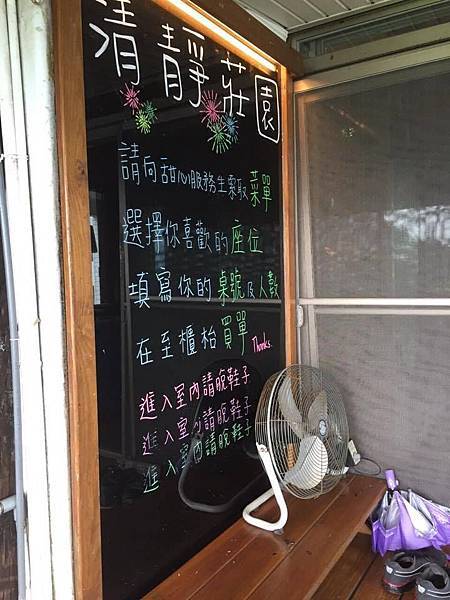 清靜莊園
請向甜心服務生索取菜單
選擇你喜歡的座位
填寫你的桌號及人數
在至櫃枱買單 Thanks
進入室內請脫鞋子
進入室內請脫鞋子
進入室內請脫鞋子